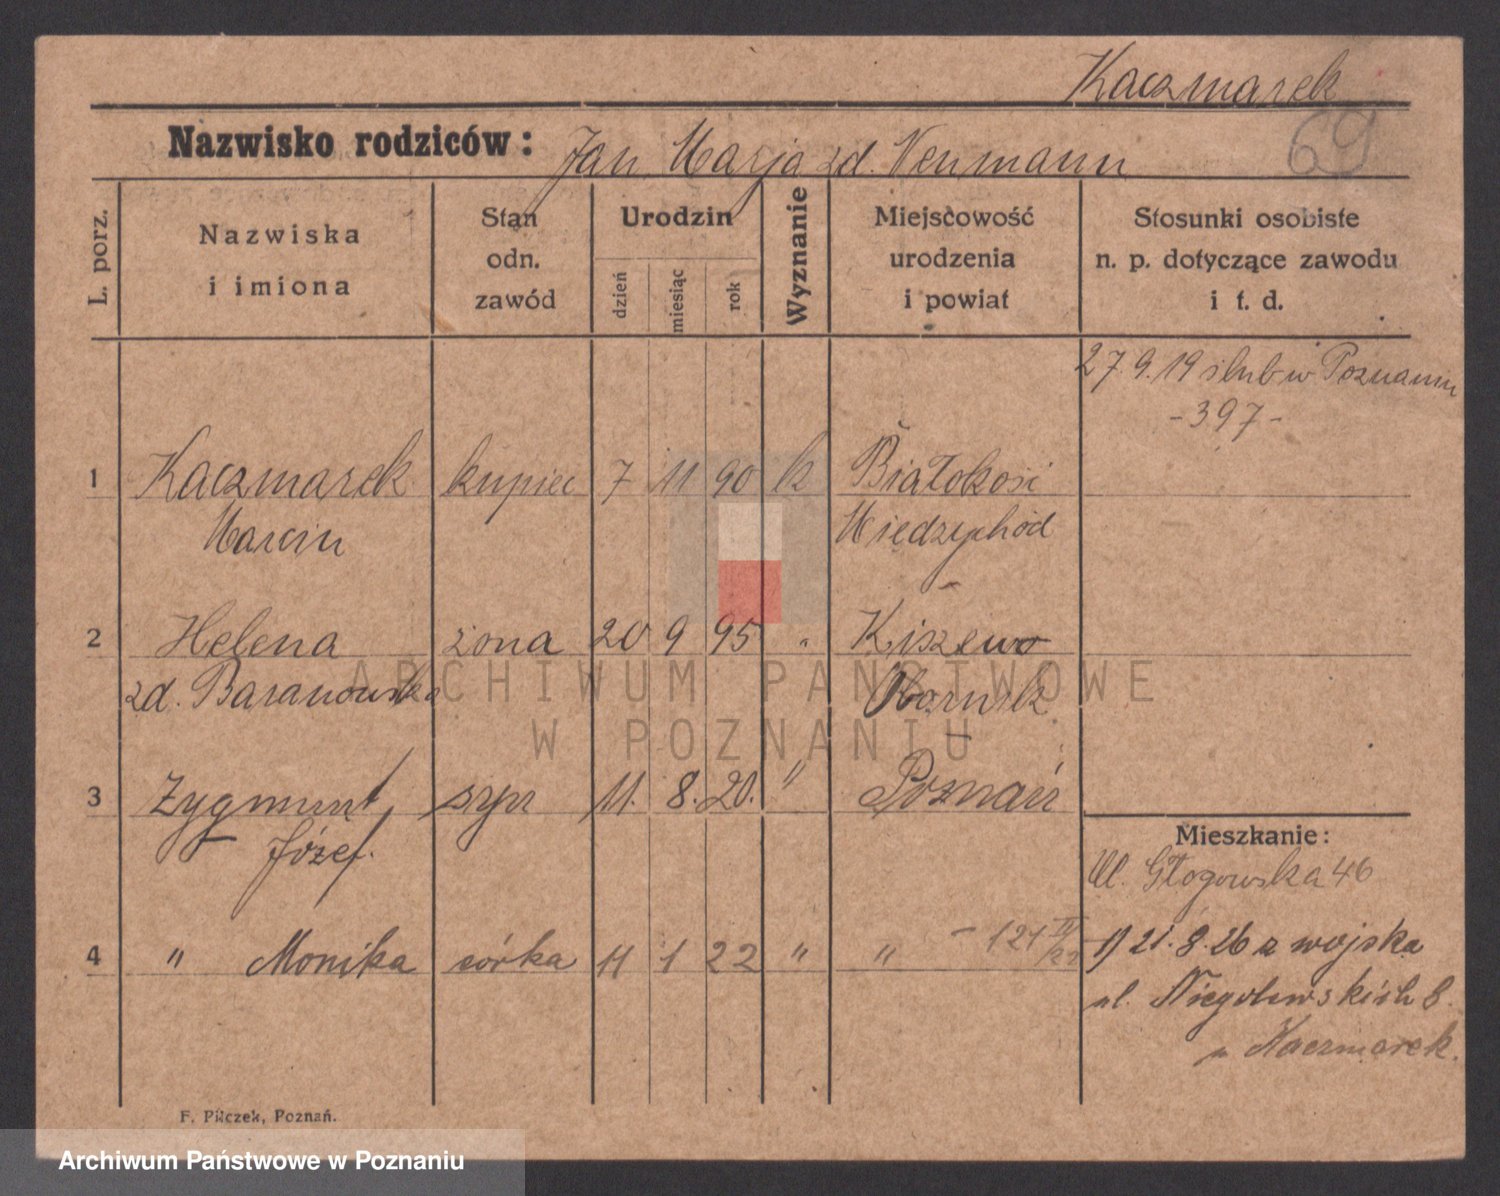 Kaczmarek
69
Nazwisko rodziców: Jan Marja zd. Neumann
L. porz.
Nazwiska
i imiona
Stan
odn.
zawód
Urodzin
dzień
miesiąc
rok
Wyznanie
Miejscowość
urodzenia
i powiat
Stosunki osobiste
n. p. dotyczące zawodu
i t. d.
27.9.19 ślub w Poznaniu
-397-
1 Kaczmarek kupiec 7 11 90 k Białokość
Marcin Miedzychód
2 Helena żona 20 9 95 " Kiszewo
zd. Baranowska Obornik
3 Zygmunt syn 11. 8. 20. " Poznań
Józef.
Mieszkanie:
Ul. Głogowska 46
4 " Monika córka 11 1 22 " " - 121 II/22
1) 21.8.26 z wojska
ul. Niegolewskich 8.
u Kaczmarek.
F. Pilczek, Poznań.
ARCHIWUM PAŃSTWOWE
W POZNANIU
Archiwum Państwowe w Poznaniu